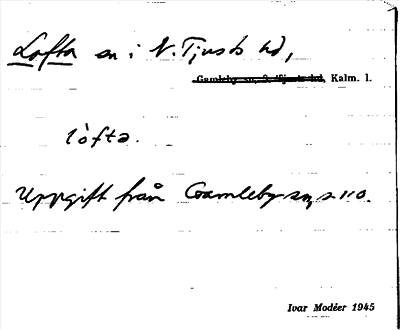 Lofta sn i N. Tjusts hd,
Gamleby sn, S. Tjusts hd, Kalm. l.
lòfta.
Uppgift från Gamleby sn, s. 110.
Ivar Modéer 1945